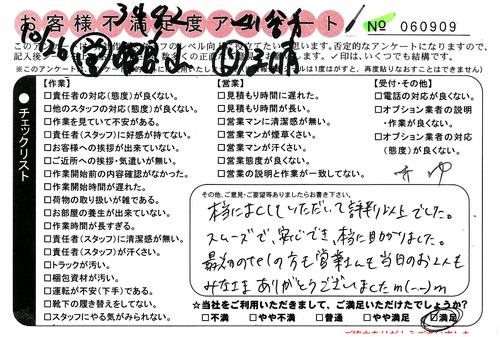 お客様不満足度アンケート
No 060909
10/26
このアンケートは
否定的なアンケートになりますので、
✓印は、いくつでも結構です。
チェックリスト
【作業】
□責任者の対応(態度)が良くない。
□他のスタッフの対応(態度)が良くない。
□作業を見ていて不安がある。
□責任者(スタッフ)に好感が持てない。
□お客様への挨拶が出来ていない。
□ご近所への挨拶・気遣いが無い。
□作業開始前の内容確認がなかった。
□作業開始時間が遅れた。
□荷物の取り扱いが雑である。
□お部屋の養生が出来ていない。
□作業時間が長すぎる。
□責任者(スタッフ)に清潔感が無い。
□責任者(スタッフ)が汗くさい。
□トラックが汚い。
□梱包資材が汚い。
□運転が不安(下手)である。
□靴下の履き替えをしてない。
□スタッフにやる気がみられない。
【営業】
□見積もり時間に遅れた。
□見積もり時間が長い。
□営業マンに清潔感が無い。
□営業マンが煙草くさい。
□営業マンが汗くさい。
□営業態度が良くない。
□営業の説明と作業が一致してない。
【受付・その他】
□電話の対応が良くない。
□オプション業者の説明
・作業が良くない。
□オプション業者の対応
(態度)が良くない。
その他、ご意見・ご要望等ありましたらお書き下さい。
本当によくしていただいて評判以上でした。
スムーズで、安心でき、本当に助かりました。
最初のtelの方も営業さんも当日のお2人も
みなさまありがとうございましたm(--)m
☆当社をご利用いただきまして、ご満足いただけたでしょうか?
□不満 □やや不満 □普通 □やや満足 ☑満足